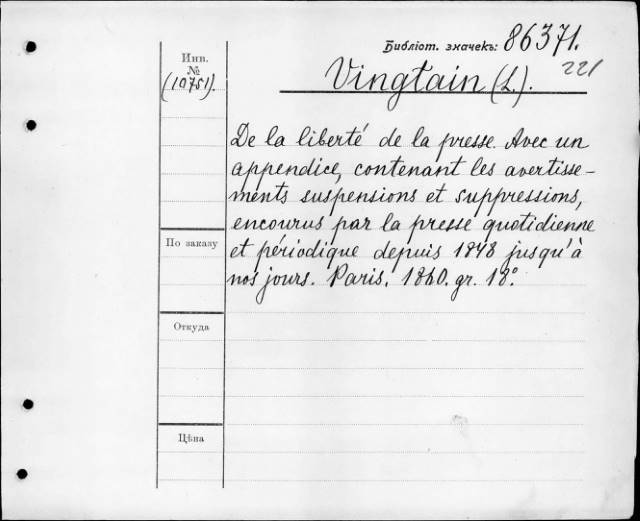 Библіот. значекъ: 86371.
221
Инв.
№
(10751).
Vingtain (L.).
De la liberté de la presse. Avec un
appendice, contenant les avertisse-
ments suspensions et suppressions,
encourus par la presse quotidienne
et périodique depuis 1848 jusqu'à
nos jours. Paris. 1860. gr. 18°.
По заказу
Откуда
Цѣна